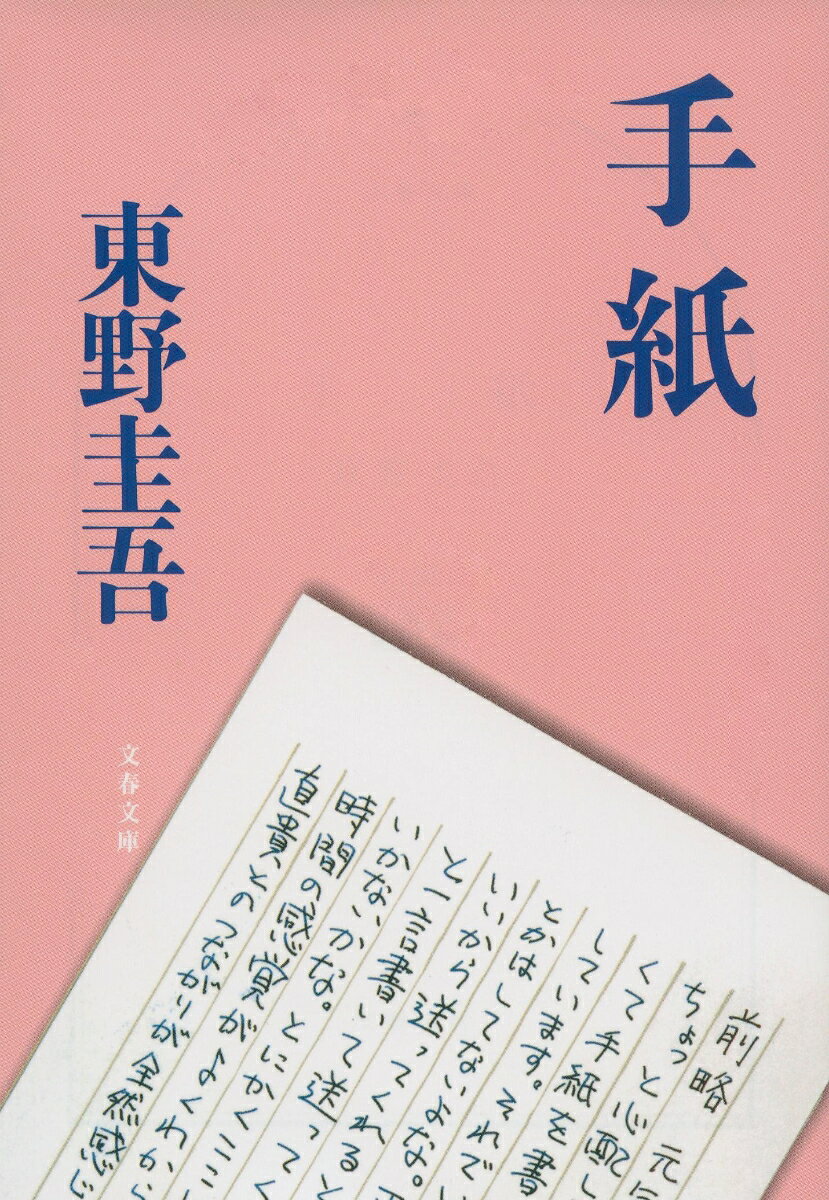 手紙
東野圭吾
文春文庫
前略 元
ちょっと心配し
くて手紙を書
しています。それでい
とかはしてないよな。
いいから送ってくれると
と一言書いて送って
いかないかな。とにかくここ
時間の感覚がよくわから
直貴とのつながりが全然感じ